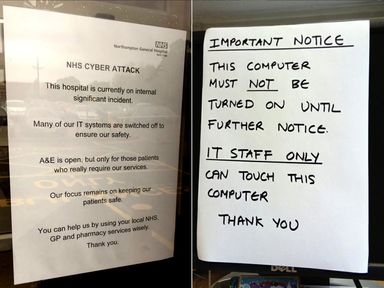 NHS
Northampton General Hospital
NHS CYBER ATTACK
This hospital is currently on internal
significant incident.
Many of our IT systems are switched off to
ensure our safety.
A&E is open, but only for those patients
who really require our services.
Our focus remains on keeping our
patients safe.
You can help us by using your local NHS,
GP and pharmacy services wisely.
Thank you.
IMPORTANT NOTICE
THIS COMPUTER
MUST NOT BE
TURNED ON UNTIL
FURTHER NOTICE.
IT STAFF ONLY
CAN TOUCH THIS
COMPUTER
THANK YOU
DELL